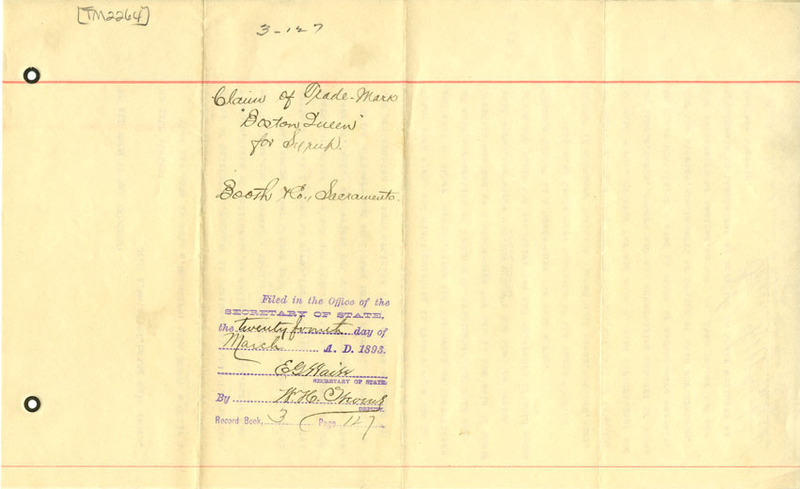 [TM2264]
3-127
Claim of Trade-Mark
"Boston Queen"
for Syrup.
Booth & Co., Sacramento.
Filed in the Office of the
SECRETARY OF STATE,
the twenty fourth day of
March A. D. 1893.
E G Waite
SECRETARY OF STATE.
By W. H.
DEPUTY.
Record Book, 3 Page 127